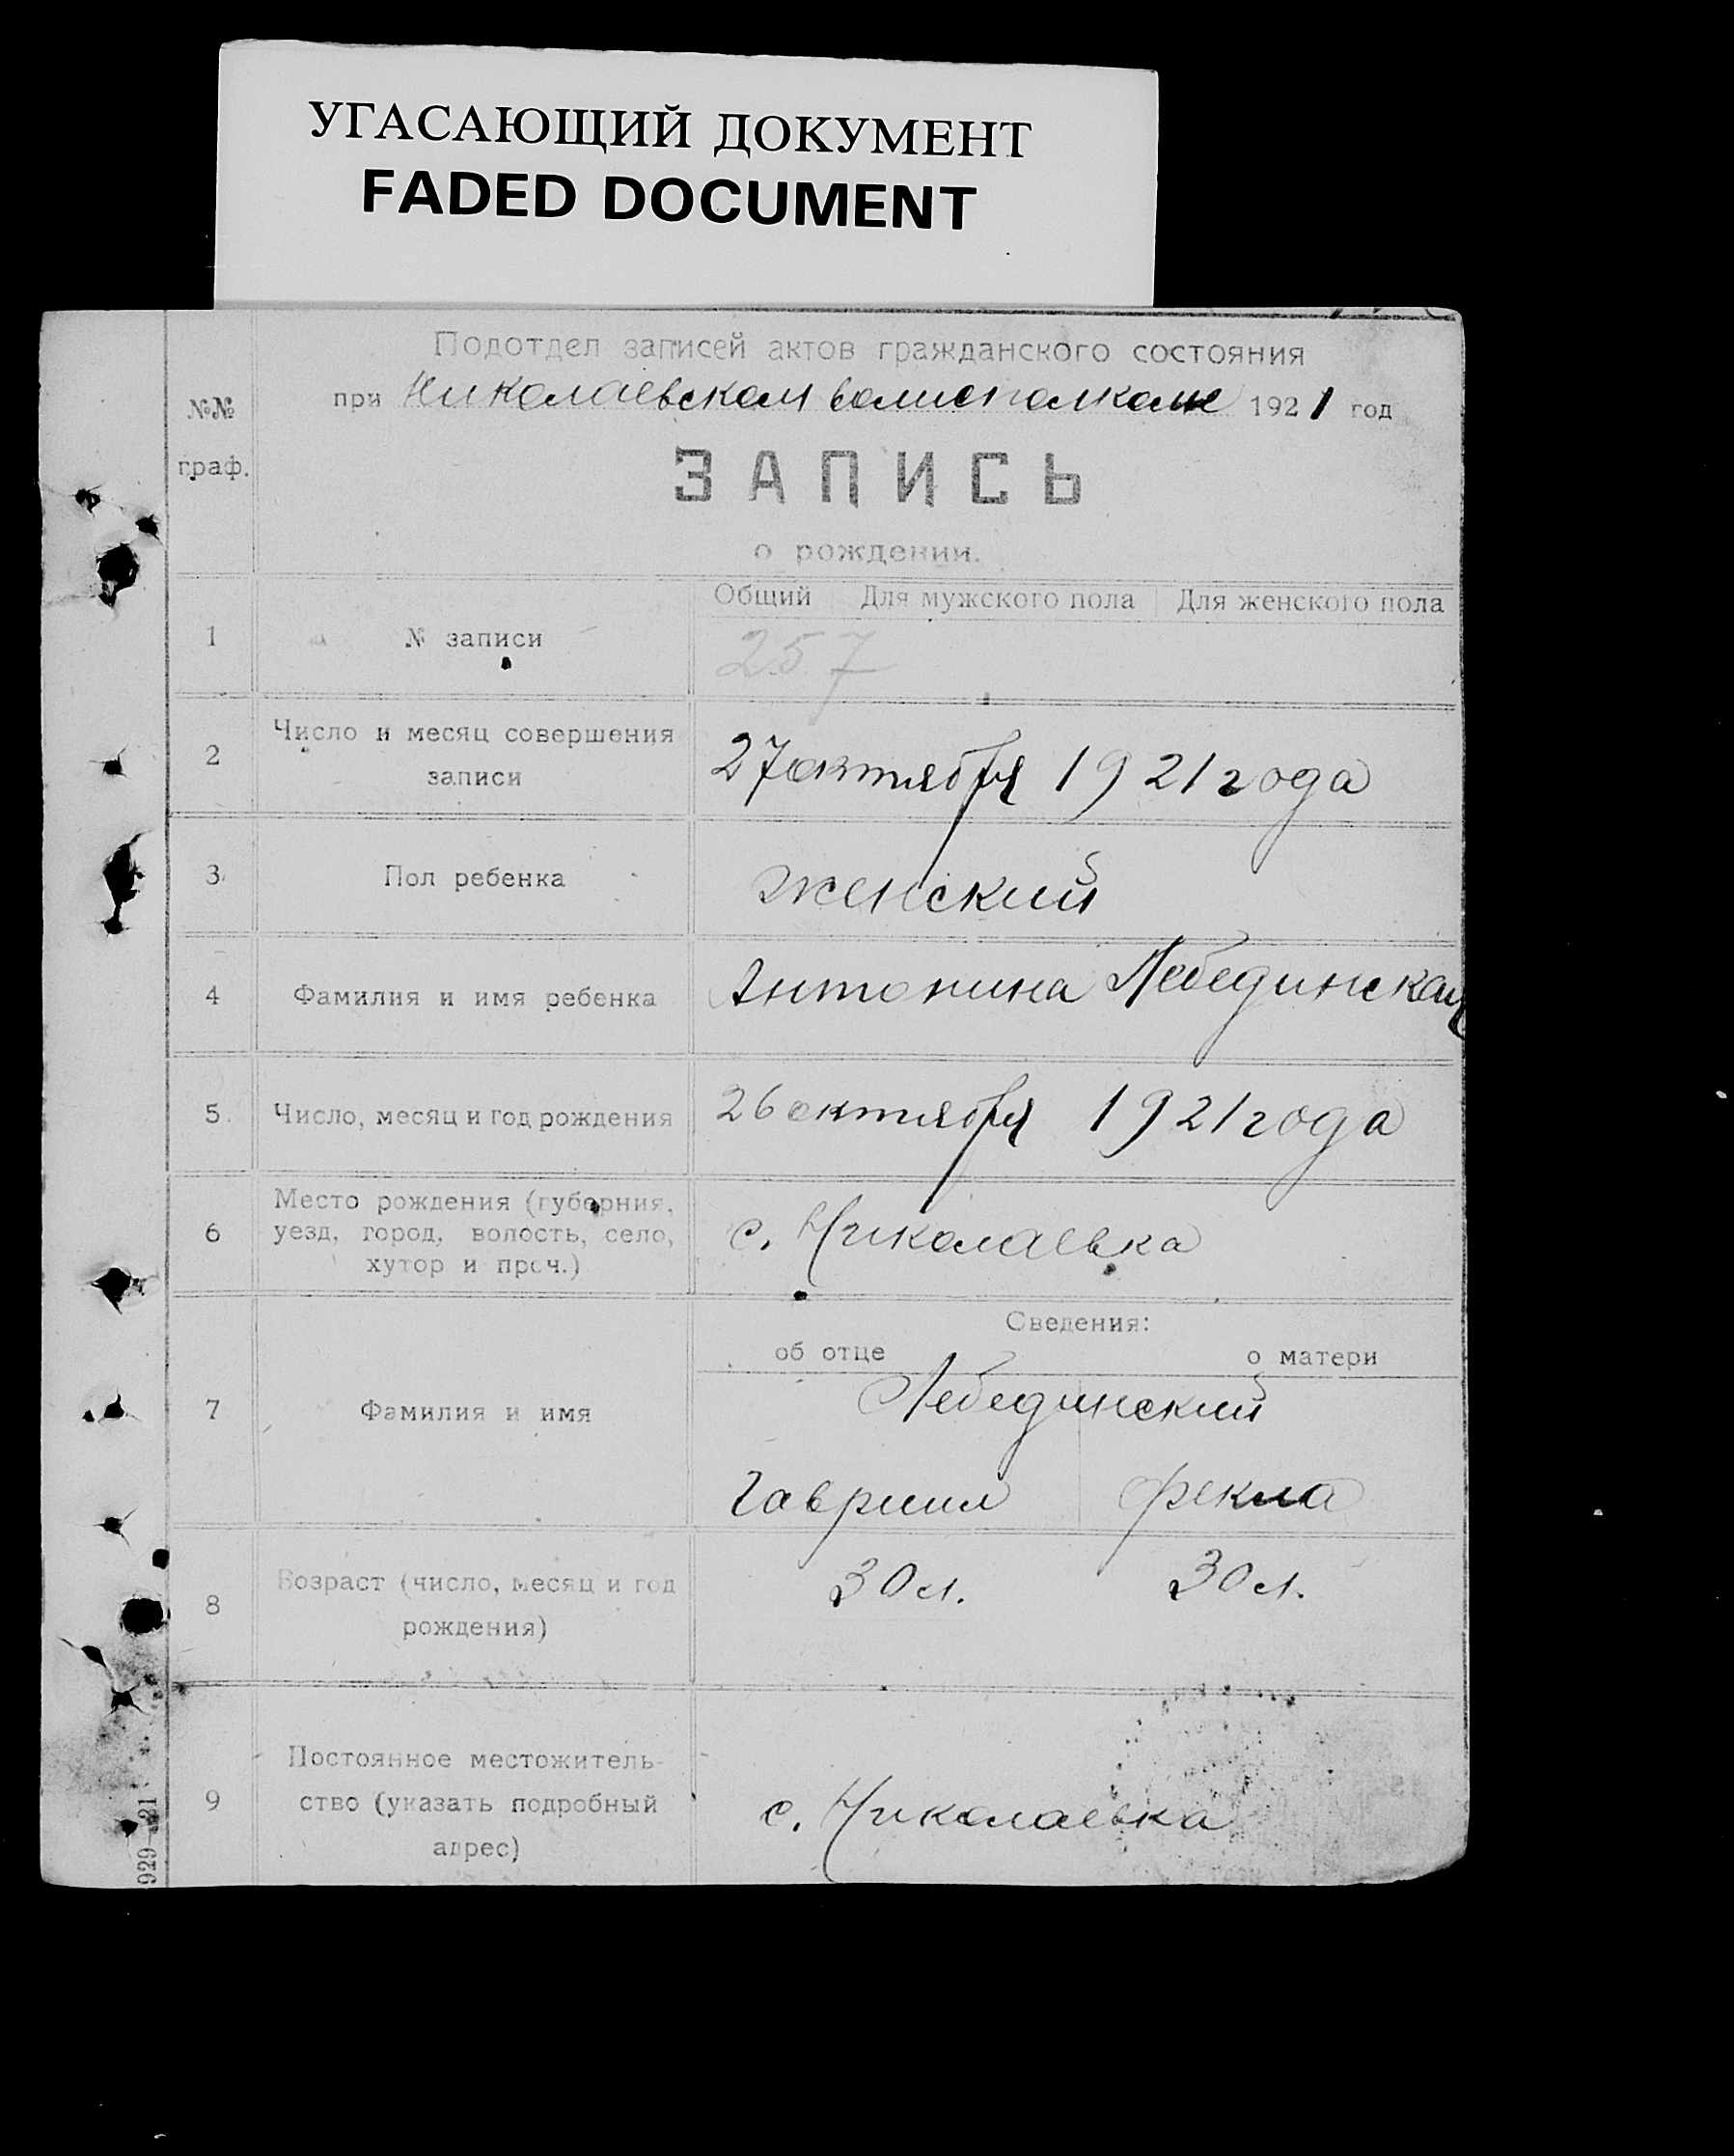 УГАСАЮЩИЙ ДОКУМЕНТ
FADED DOCUMENT
Подотдел записей актов гражданского состояния
при Николаевском волисполкоме 1921 год
№№
граф.
ЗАПИСЬ
о рождении.
Общий Для мужского пола Для женского пола
1 № записи 257
2 Число и месяц совершения
записи
27 октября 1921 года
3 Пол ребенка женский
4 Фамилия и имя ребенка Антонина Лебединская
5 Число, месяц и год рождения 26 октября 1921 года
6 Место рождения (губерния,
уезд, город, волость, село,
хутор и проч.)
с. Николаевка
Сведения:
об отце о матери
7 Фамилия и имя Лебединский
Гавриил Фекла
8 Возраст (число, месяц и год
рождения)
30 л. 30 л.
9 Постоянное местожитель-
ство (указать подробный
адрес)
с. Николаевка
929—21